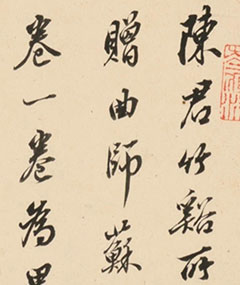 陳君竹谿所
贈曲師蘇
卷一卷為